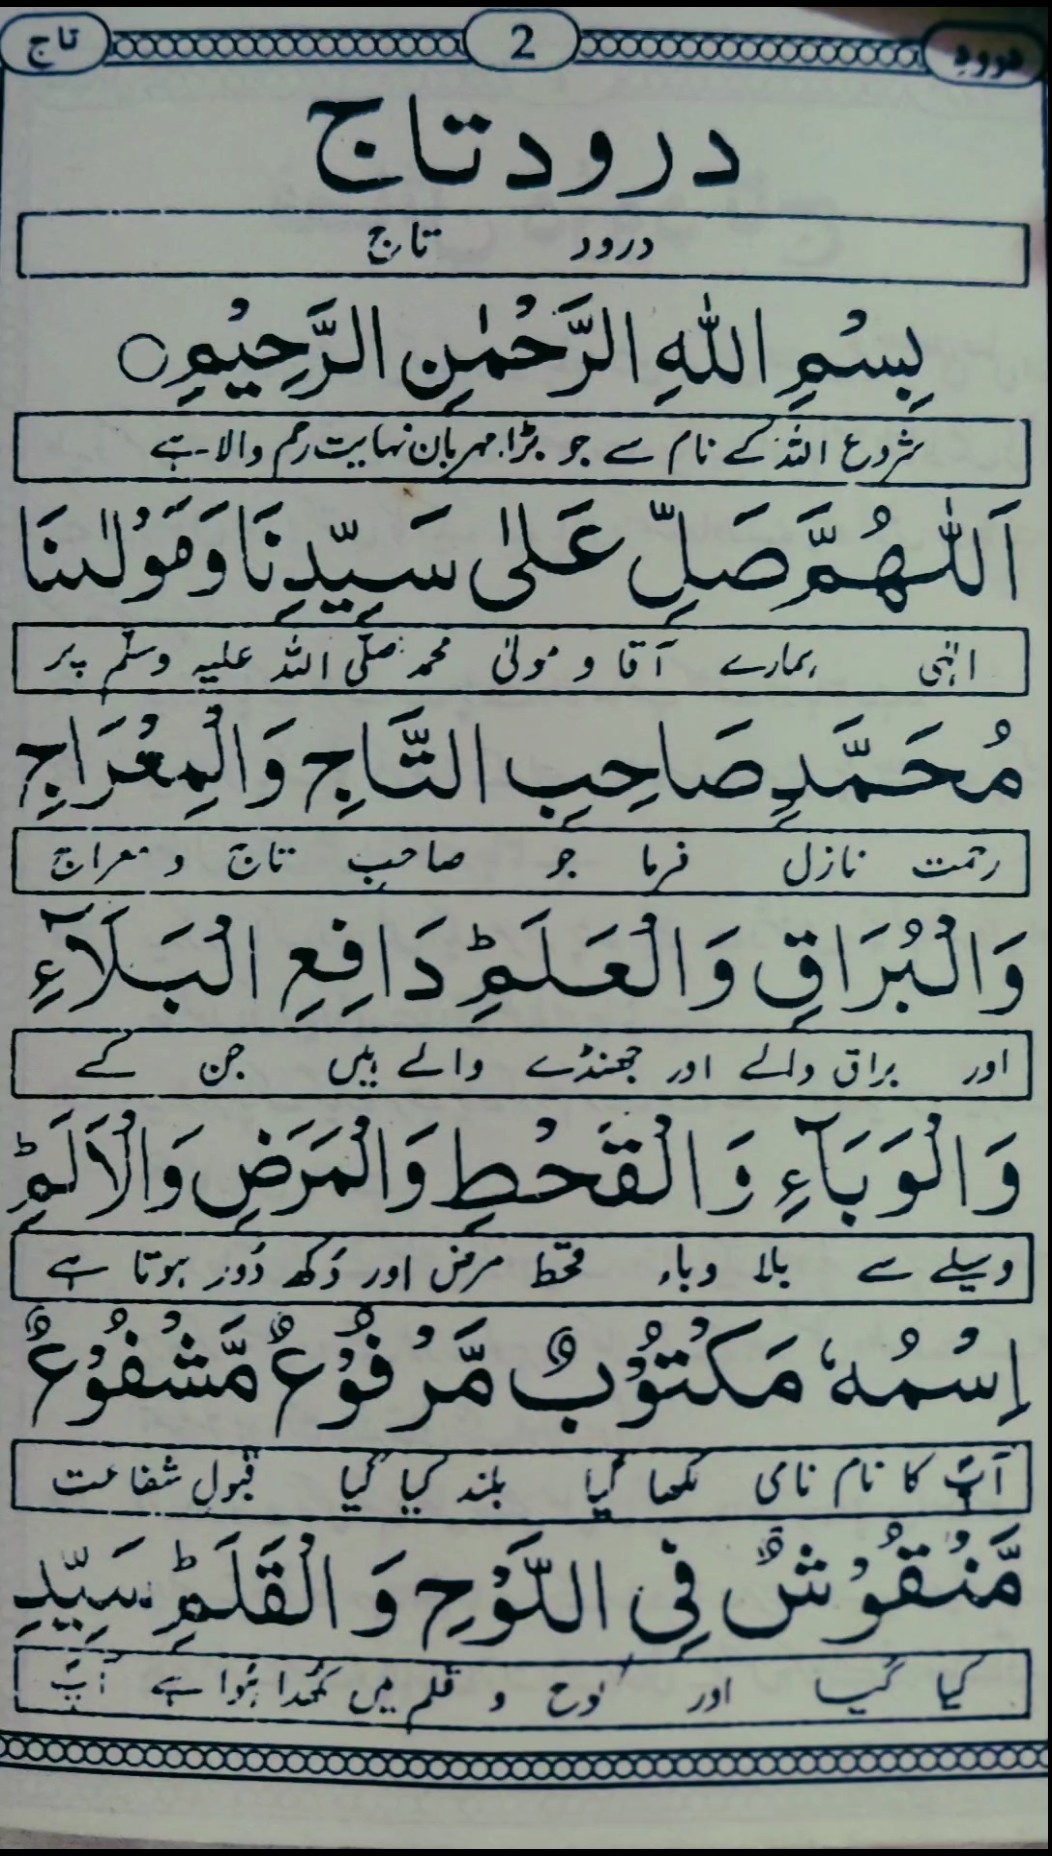 درود 2 تاج
درود تاج
درود تاج
بِسْمِ اللّٰهِ الرَّحْمٰنِ الرَّحِيْمِ○
شروع اللہ کے نام سے جو بڑا مہربان نہایت رحم والا ہے
اَللّٰهُمَّ صَلِّ عَلٰى سَيِّدِنَا وَمَوْلٰىنَا
الٰہی ہمارے آقا و مولیٰ محمد صلّی اللہ علیہ وسلّم پر
مُحَمَّدٍ صَاحِبِ التَّاجِ وَالْمِعْرَاجِ
رحمت نازل فرما جو صاحب تاج و معراج
وَالْبُرَاقِ وَالْعَلَمِؕ دَافِعِ الْبَلَآءِ
اور براق والے اور جھنڈے والے ہیں جن کے
وَالْوَبَآءِ وَالْقَحْطِ وَالْمَرَضِ وَالْاَلَمِؕ
وسیلے سے بلا وباء قحط مرض اور دُکھ دُور ہوتا ہے
اِسْمُهٗ مَكْتُوْبٌ مَّرْفُوْعٌ مَّشْفُوْعٌ
آپؐ کا نام نامی لکھا گیا بلند کیا گیا قبول شفاعت
مَّنْقُوْشٌ فِى اللَّوْحِ وَالْقَلَمِؕ سَيِّدِ
کیا گیا اور لوح و قلم میں کھُدا ہُوا ہے آپؐ